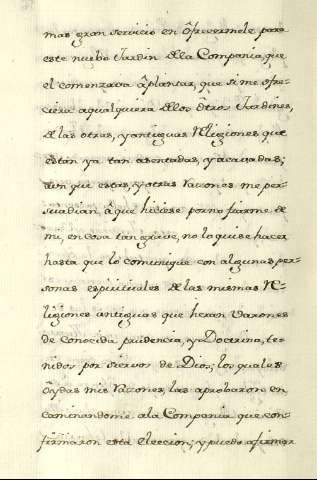 mas gran servicio en ôfrecermele para
este nuebo Jardin dela Compania, que
el comenzava âplantar, que si me ofre-
ciera aqualquiera delos otros Jardines,
de las otras, y antiguas Religiones que
estan ya tan asentadas, y acavadas;
aun que estas, y otras razones me per-
suadian â que hiciese por no fiarme de
mi, en cosa tan grave, no lo quise hacer
hasta que lo comunique con algunas per-
sonas espirituales de las mismas Re-
ligiones antiguas que heran Varones
de conocida prudencia, y Doctrina, te-
nidos por siervos de Dios, los quales
Oydas mis razones, las aprobaron en
caminandome ala Compania que con-
firmaron esta Eleccion; y puedo afirmar